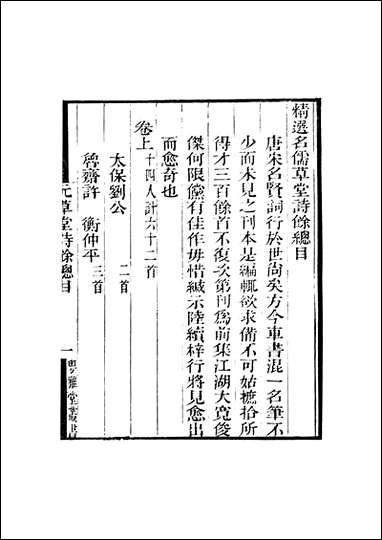 精選名儒草堂詩餘總目
唐宋名賢詞行於世尚矣方今車書混一名筆不
少而未見之刊本是編輒欲求備不可姑摭拾所
得才三百餘首不復次第刊爲前集江湖大寬俊
傑何限儻有佳作毋惜緘示陸續梓行將見愈出
而愈奇也
卷上十四人計六十二首
太保劉公 二首
魯齋許 衡仲平 三首
元草堂詩餘總目 一 粵雅堂叢書